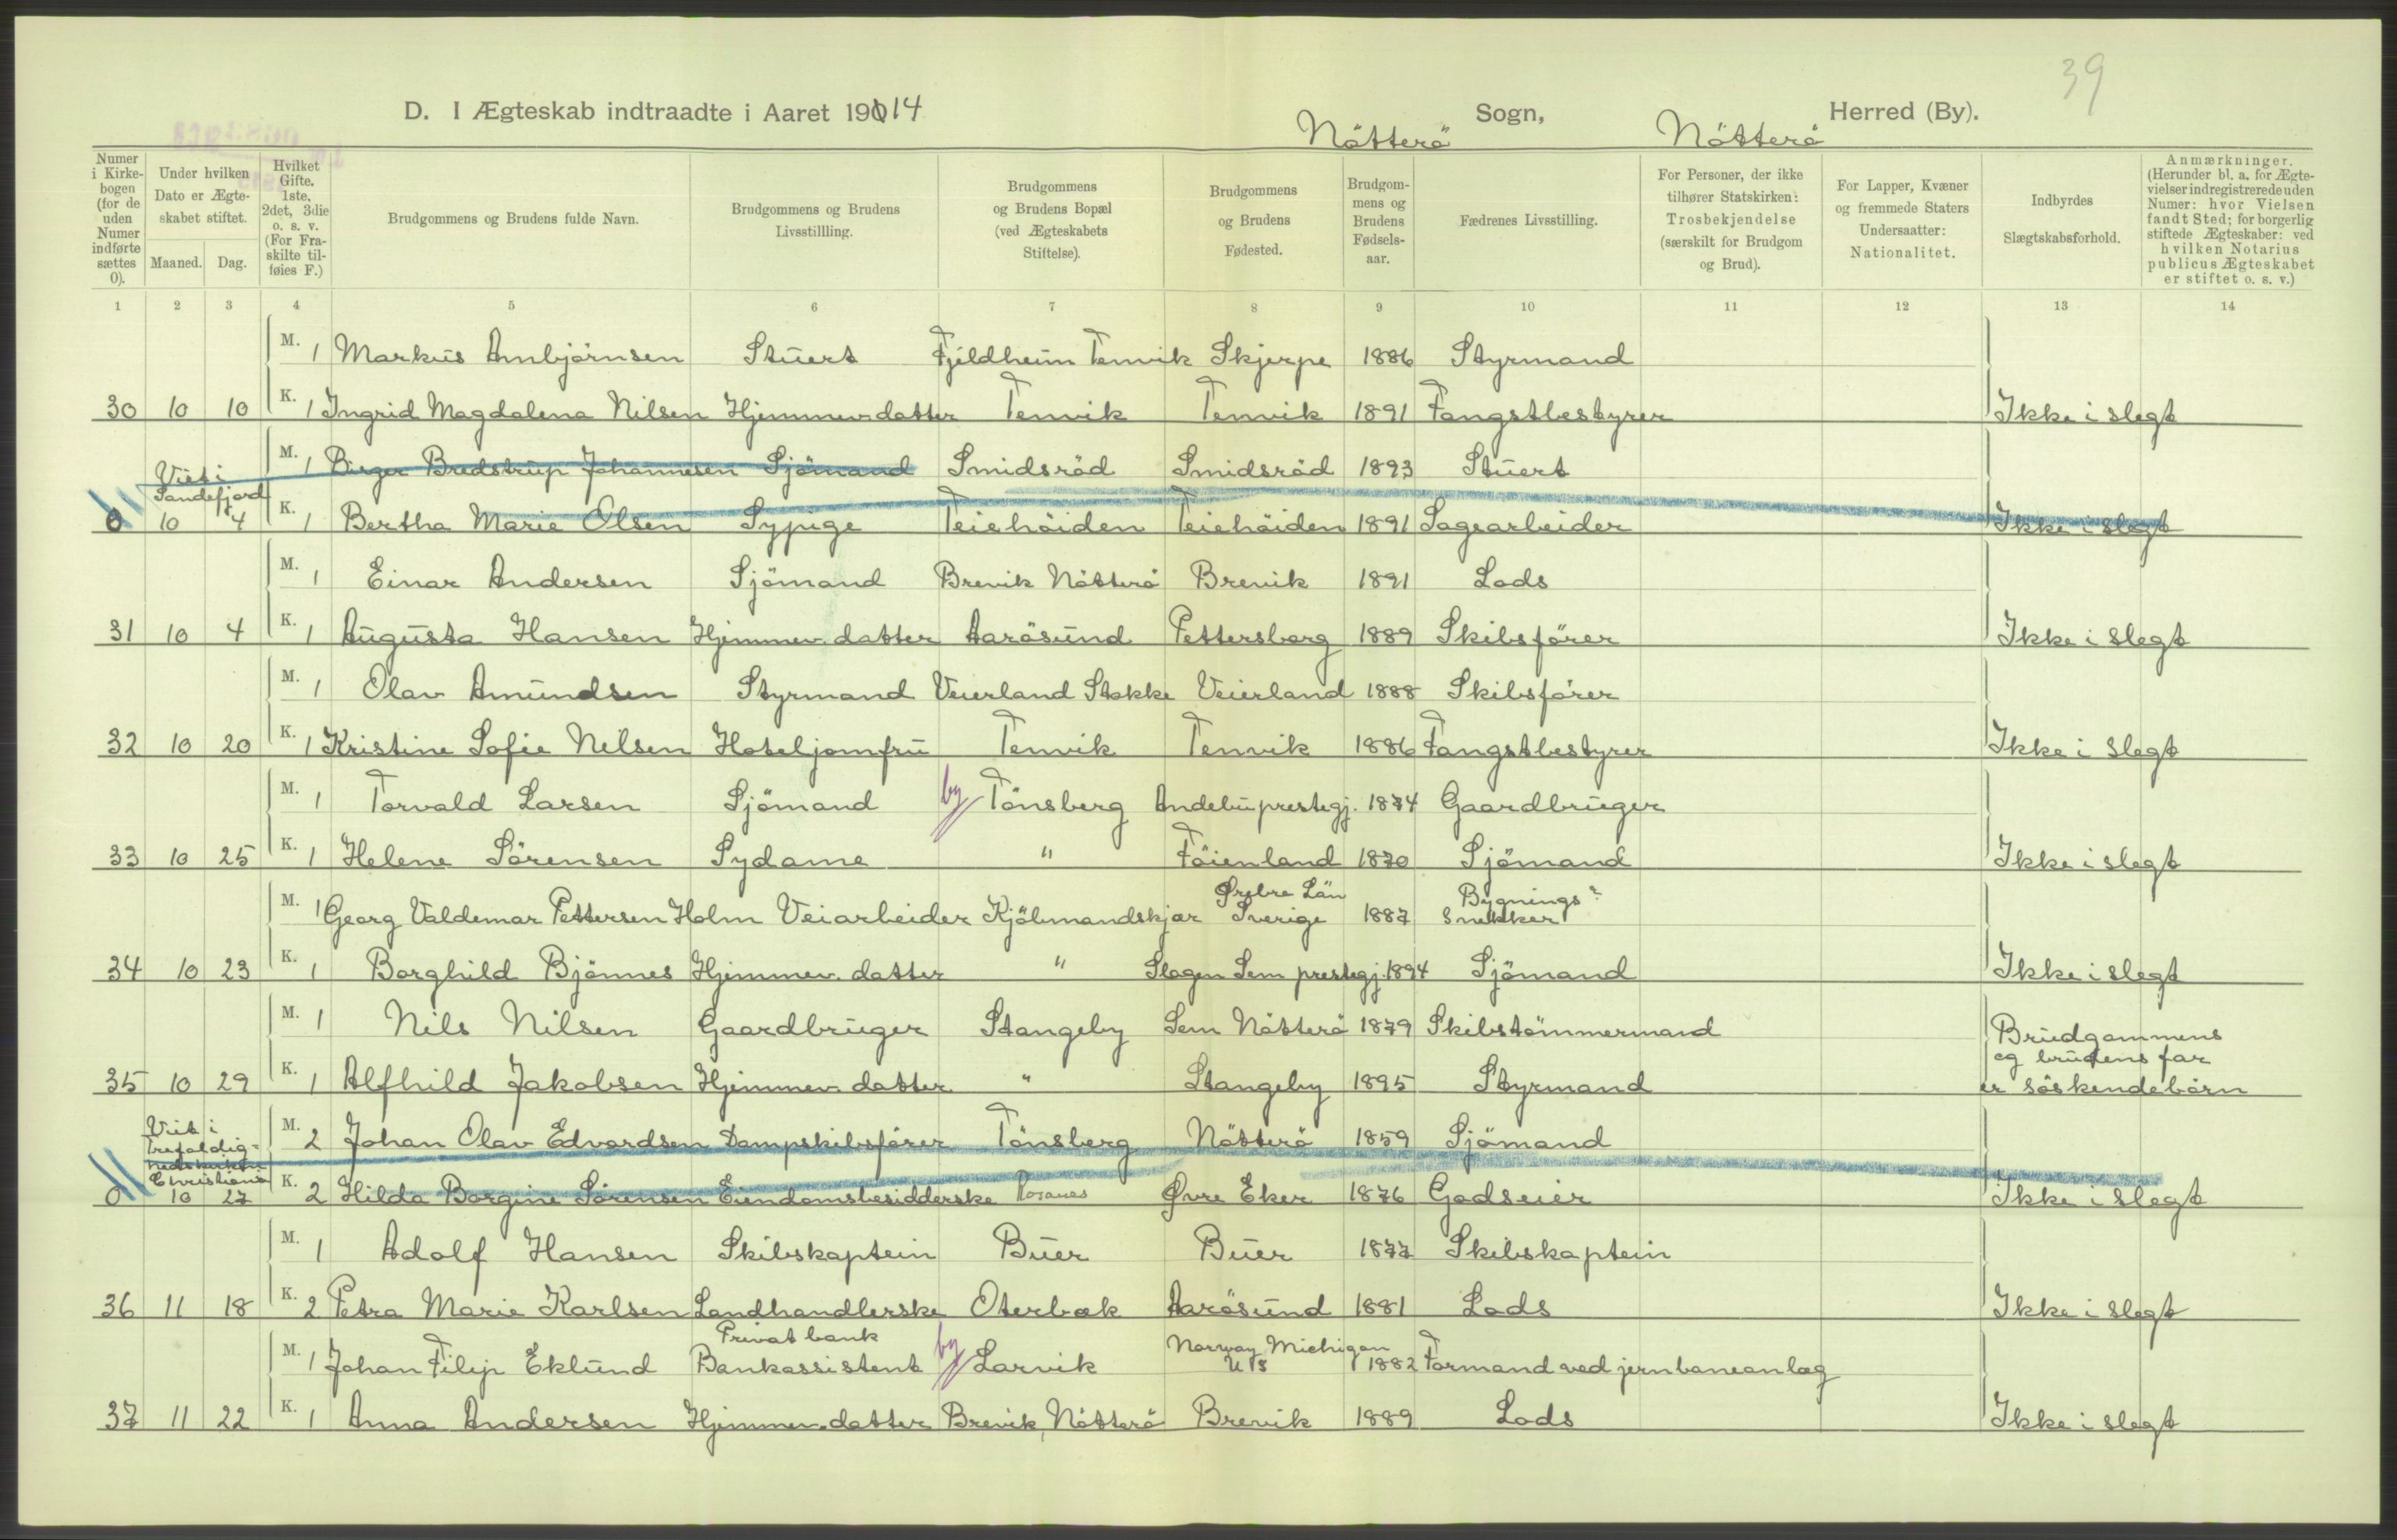 39
D. I Ægteskab indtraadte i Aaret 19014 Nötterö Sogn, Nötterö Herred (By).
Numer i Kirkebogen (for de uden Numer indførte sættes 0).
Under hvilken Dato er Ægteskabet stiftet.
Maaned. Dag.
Hvilket Gifte. 1ste, 2det, 3die o. s. v. (For Fraskilte tilføies F.)
Brudgommens og Brudens fulde Navn.
Brudgommens og Brudens Livsstillling.
Brudgommens og Brudens Bopæl (ved Ægteskabets Stiftelse).
Brudgommens og Brudens Fødested.
Brudgommens og Brudens Fødselsaar.
Fædrenes Livsstilling.
For Personer, der ikke tilhører Statskirken: Trosbekjendelse (særskilt for Brudgom og Brud).
For Lapper, Kvæner og fremmede Staters Undersaatter: Nationalitet.
Indbyrdes Slægtskabsforhold.
Anmærkninger. (Herunder bl. a. for Ægtevielser indregistrerede uden Numer: hvor Vielsen fandt Sted; for borgerlig stiftede Ægteskaber: ved hvilken Notarius publicus Ægteskabet er stiftet o. s. v.)
1 2 3 4 5 6 7 8 9 10 11 12 13 14
M. 1 Markus Arnbjörnsen Stuert Fjeldheim Tenvik Skjerpe 1886 Styrmand
30 10 10 K. 1 Ingrid Magdalena Nilsen Hjemmev. datter Tenvik Tenvik 1891 Fangstbestyrer Ikke i slegt
M. 1 Birger Bredstrup Johannesen Sjömand Smidsröd Smidsröd 1893 Stuert
Viet i Sandefjord
0 10 4 K. 1 Bertha Marie Olsen Sypige Teiehöiden Teiehöiden 1891 Sagearbeider Ikke i slegt
M. 1 Einar Andersen Sjömand Brevik Nötterö Brevik 1891 Lods
31 10 4 K. 1 Augusta Hansen Hjemmev. datter Aarösund Pettersborg 1889 Skibsförer Ikke i slegt
M. 1 Olav Amundsen Styrmand Veierland Stokke Veierland 1888 Skibsförer
32 10 20 K. 1 Kristine Sofie Nilsen Hoteljomfru Tenvik Tenvik 1886 Fangstbestyrer Ikke i slegt
M. 1 Torvald Larsen Sjömand by Tönsberg Andebu prestegj. 1874 Gaardbruger
33 10 25 K. 1 Helene Sörensen Sydame " Föienland 1870 Sjömand Ikke i slegt
M. 1 Georg Valdemar Pettersen Holm Veiarbeider Kjöbmandskjær Ørebro Län Sverige 1887 Bygnings snekker
34 10 23 K. 1 Borghild Bjönnes Hjemmev. datter " Slagen Sem prestegj. 1894 Sjömand Ikke i slegt
M. 1 Nils Nilsen Gaardbruger Stangeby Sem Nötterö 1879 Skibstömmermand
35 10 29 K. 1 Alfhild Jakobsen Hjemmev. datter " Stangeby 1895 Styrmand Brudgommens og brudens far er söskendebörn
M. 2 Johan Olav Edvardsen Dampskibsförer Tönsberg Nötterö 1859 Sjömand
Viet i Trefoldighedskirken Christiania
0 10 27 K. 2 Hilda Borgine Sörensen Eiendomsbesidderske Rosanes Øvre Eker 1876 Godseier Ikke i slegt
M. 1 Adolf Hansen Skibskaptein Buer Buer 1877 Skibskaptein
36 11 18 K. 2 Petra Marie Karlsen Landhandlerske Oterbæk Aarösund 1881 Lods Ikke i slegt
M. 1 Johan Filip Eklund Privatbank Bankassistent by Larvik Norway Michigan U S 1882 Formand ved jernbaneanlæg
37 11 22 K. 1 Anna Andersen Hjemmev. datter Brevik, Nötterö Brevik 1889 Lods Ikke i slegt